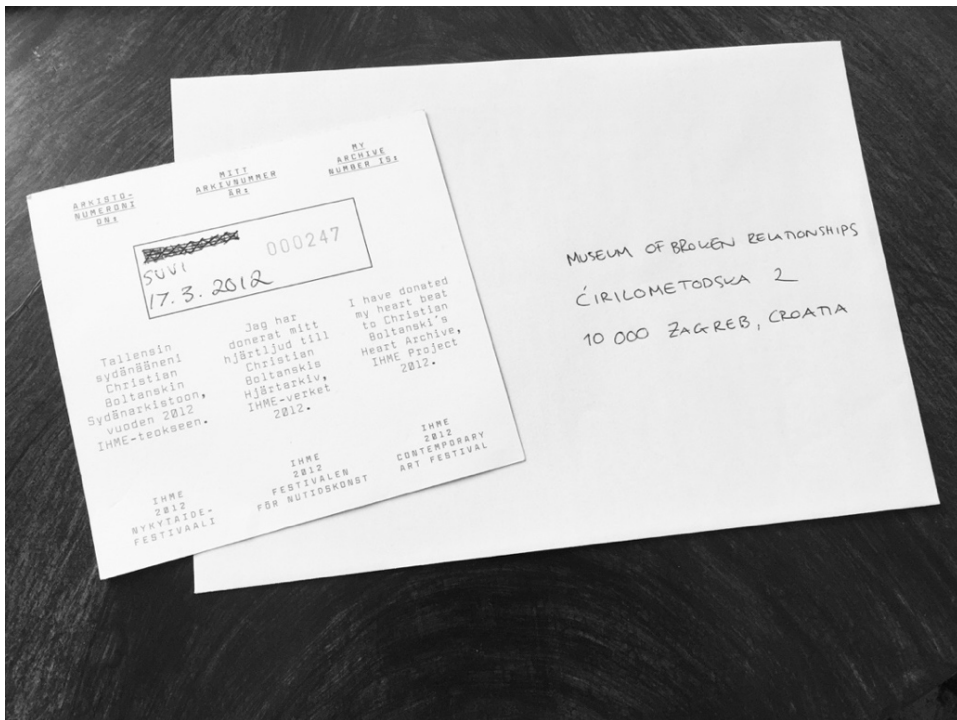 ARKISTO-
NUMERONI
ON:
MITT
ARKIVNUMMER
ÄR:
MY
ARCHIVE
NUMBER IS:
000247
SUVI
17.3.2012
Tallensin
sydänääneni
Christian
Boltanskin
Sydänarkistoon,
vuoden 2012
IHME-teokseen.
Jag har
donerat mitt
hjärtljud till
Christian
Boltanskis
Hjärtarkiv,
IHME-verket
2012.
I have donated
my heart beat
to Christian
Boltanski's
Heart Archive,
IHME Project
2012.
IHME
2012
NYKYTAIDE-
FESTIVAALI
IHME
2012
FESTIVALEN
FÖR NUTIDSKONST
IHME
2012
CONTEMPORARY
ART FESTIVAL
MUSEUM OF BROKEN RELATIONSHIPS
ĆIRILOMETODSKA 2
10 000 ZAGREB, CROATIA